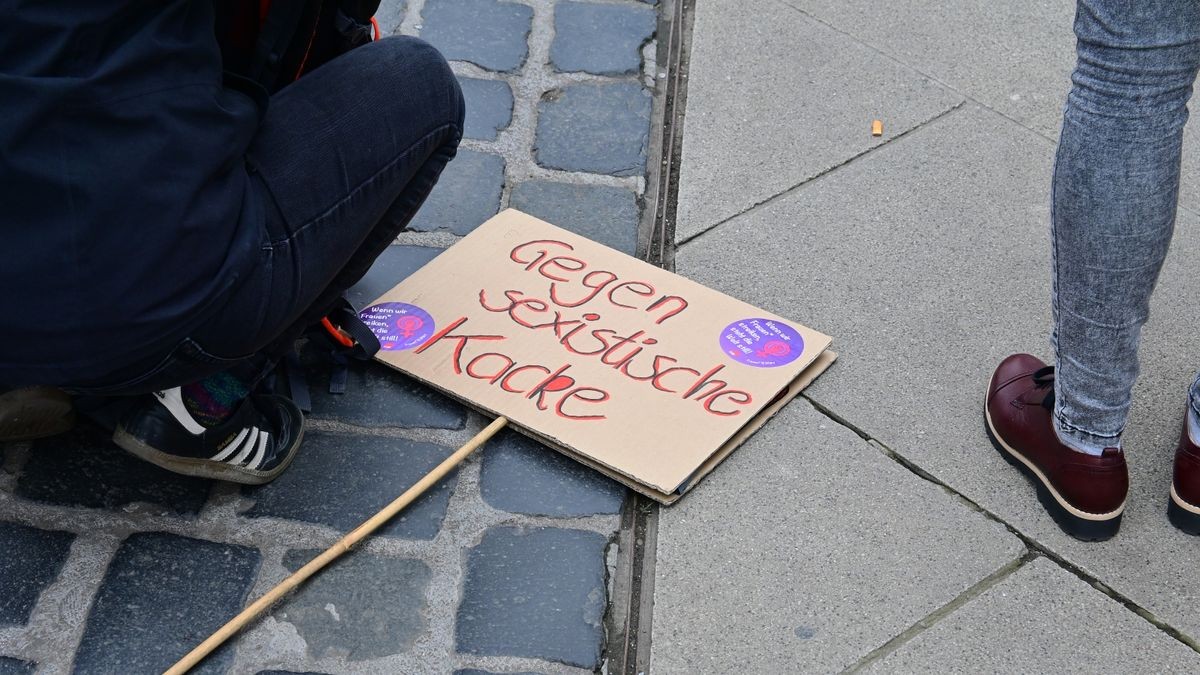 Gegen
sexistische
Kacke
Wenn wir
Frauen*
streiken,
die
Welt still!
Wenn wir
Frauen*
streiken,
steht die
Welt still!